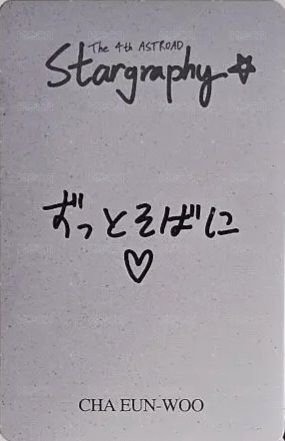 The 4th ASTROAD
Stargraphy
ずっとそばに
CHA EUN-WOO